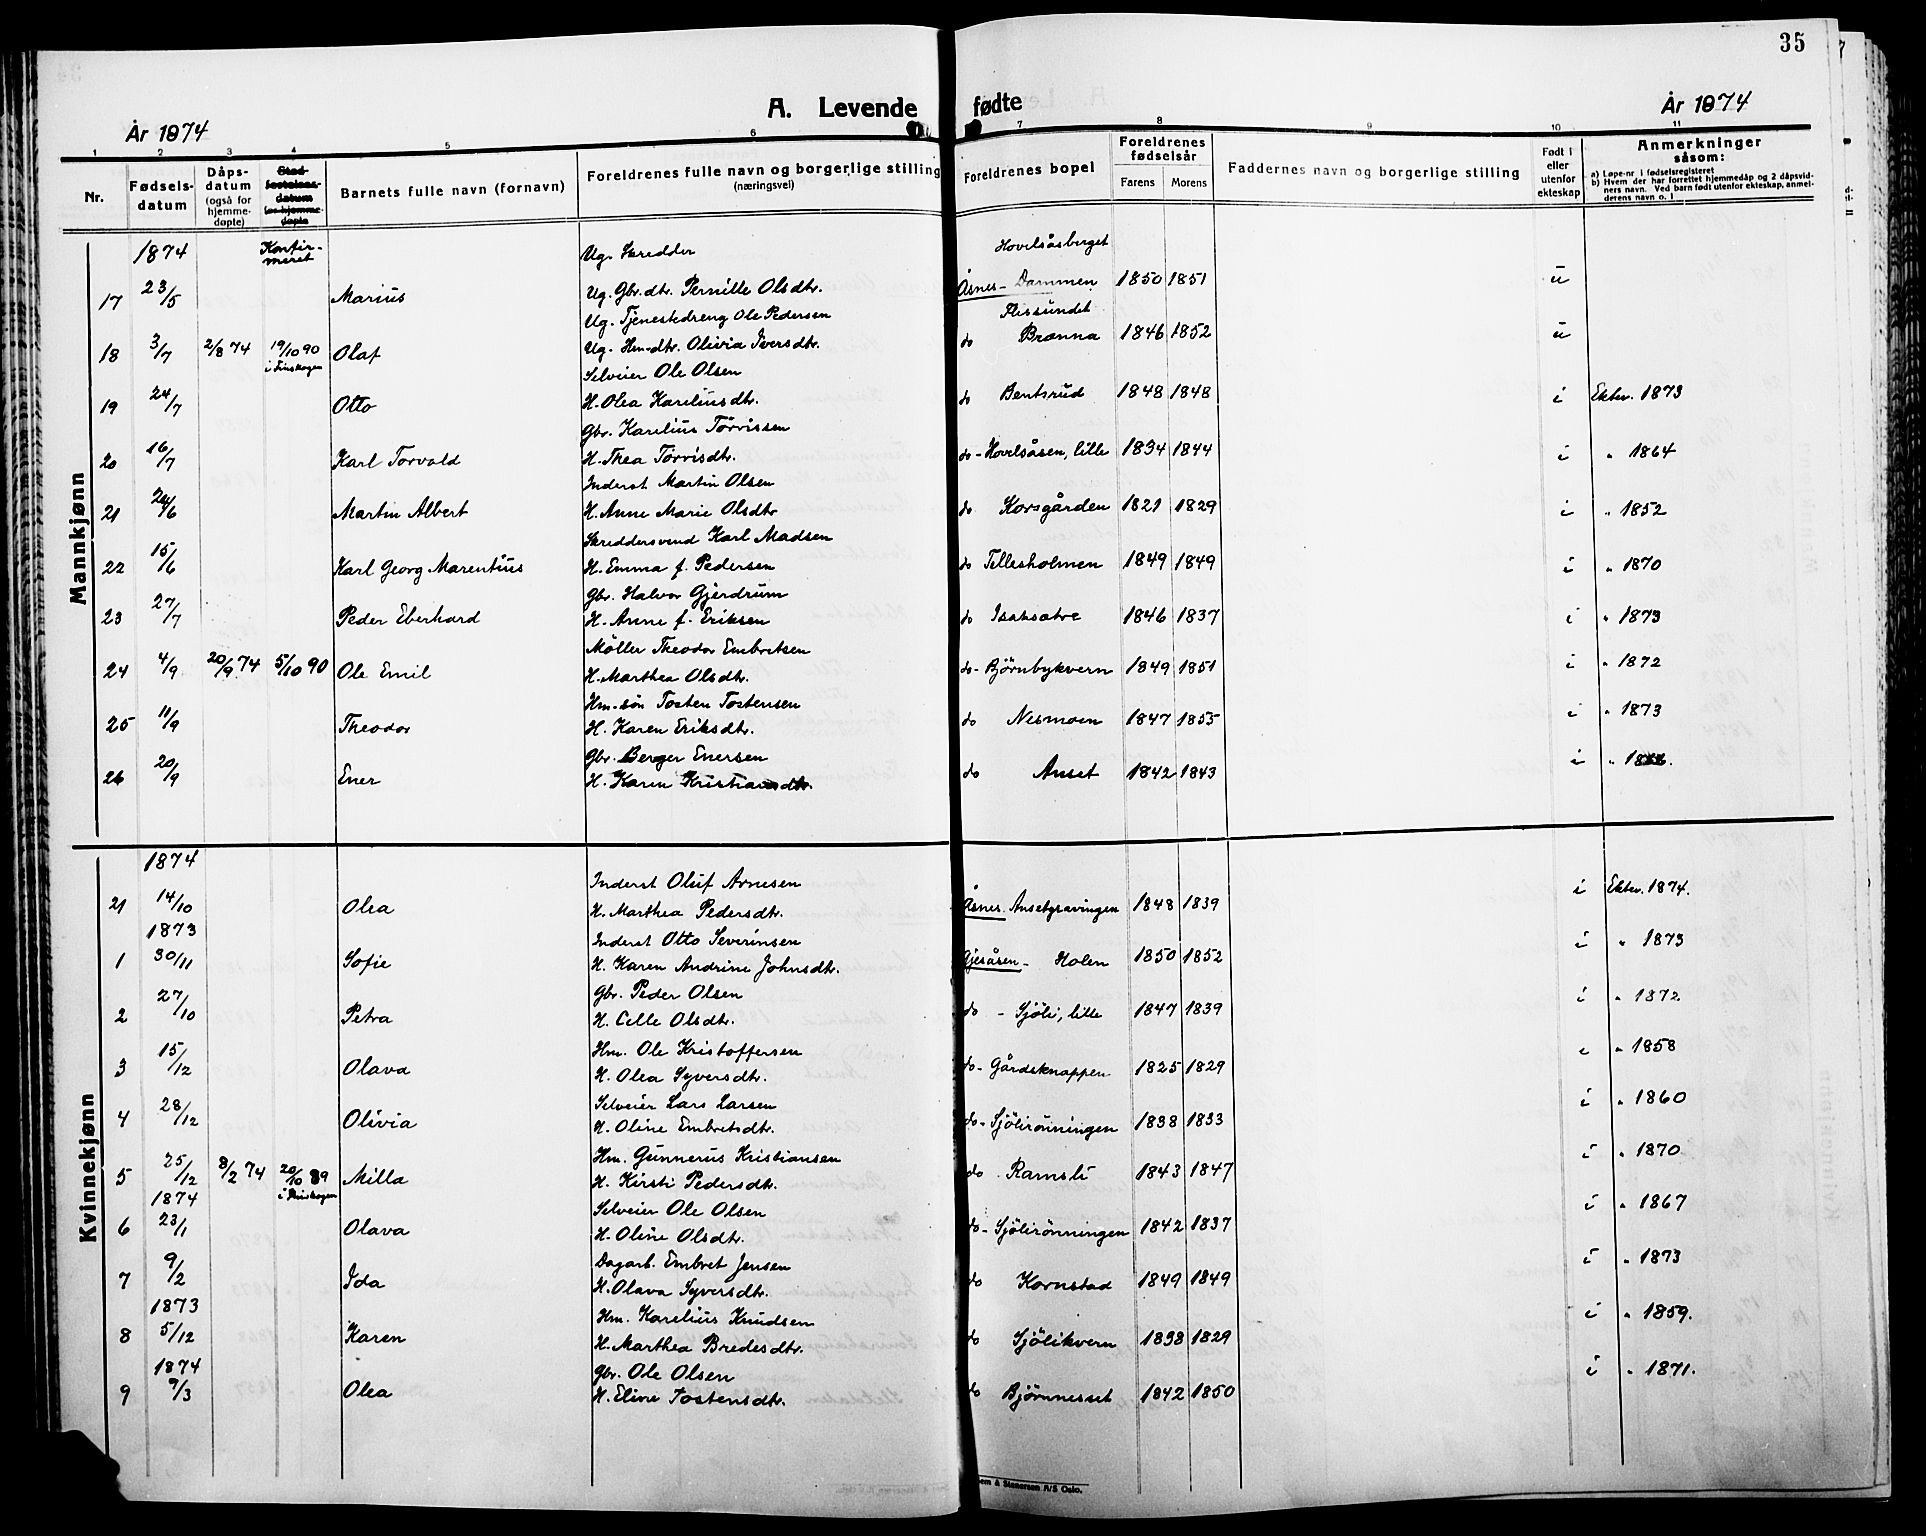 35
A. Levende fødte
År 1874
År 1874
1 2 3 4 5 6 7 8 9 10 11
Nr.
Fødsels-datum
Dåps-datum (også for hjemme-døpte)
Stad-festelses-datum for hjemme-døpte
Barnets fulle navn (fornavn)
Foreldrenes fulle navn og borgerlige stilling (næringsvei)
Foreldrenes bopel
Foreldrenes fødselsår
Farens Morens
Faddernes navn og borgerlige stilling
Født i eller utenfor ekteskap
Anmerkninger såsom:
a) Løpe-nr i fødselsregisteret
b) Hvem der har forrettet hjemmedåp og 2 dåpsvid-
ners navn. Ved barn født utenfor ekteskap, anmel-
derens navn o. l
Mannkjønn
1874 Konfir-meret Ug. Skredder Hovelsåsberget
17 23/5 Marius Ug. Gbr.dtr. Pernille Olsdtr. Åsnes - Dammen 1850 1851 u
Ug. Tjenestedreng Ole Pedersen Flissundet
18 3/7 2/8 74 19/10 90 i Finskogen Olaf Ug. Hm-dtr. Olivia Iversdtr. do Brænna 1846 1852 u
Selveier Ole Olsen
19 24/7 Otto H. Olea Kareliusdtr. do Bentsrud 1848 1848 i Ektev. 1873
Gbr. Karelius Törvissen
20 16/7 Karl Torvald H. Thea Törvisdtr. do - Hovelsåsen, lille 1834 1844 i " 1864
Inderst Martin Olsen
21 24/6 Martin Albert H. Anne Marie Olsdtr do Korsgården 1821 1829 i " 1852
Skreddersvend Karl Madsen
22 15/6 Karl Georg Marentius H. Emma f. Pedersen do Tellesholmen 1849 1849 i " 1870
Gbr. Halvor Gjerdrum
23 27/7 Peder Eberhard H. Anne f. Eriksen do Isaksætre 1846 1837 i " 1873
Møller Theodor Embretsen
24 4/9 20/9 74 5/10 90 Ole Emil H. Marthea Olsdtr. do - Björnbykvern 1849 1851 i " 1872
Hm-søn Tosten Tostensen
25 11/9 Theodor H. Karen Eriksdtr. do Nesmoen 1847 1855 i " 1873
Gbr. Berger Enersen
26 20/9 Ener H. Karen Kristiansdtr. do Anset 1842 1843 i "
Kvinnekjønn
1874
Inderst Oluf Arnesen
21 14/10 Olea H. Marthea Pedersdtr. Åsnes. Ansetgravingen 1848 1839 i Ektev. 1874.
1873 Inderst Otto Severinsen
1 30/11 Sofie H. Karen Andrine Johnsdtr. Gjesåsen - Holen 1850 1852 i " 1873
Gbr. Peder Olsen
2 27/10 Petra H. Celle Olsdtr. do - Sjöli, lille 1847 1839 i " 1872
Hm. Ole Kristoffersen
3 15/12 Olava H. Olea Syversdtr. do - Gårdsknappen 1825 1829 i " 1858
Selveier Lars Larsen
4 28/12 Olivia H. Oline Embretsdtr. do - Sjölirönningen 1838 1833 i " 1860
Hm. Gunnerus Kristiansen
5 25/12 8/2 74 20/10 89 i Finskogen Milla H. Kirsti Pedersdtr. do Ramsli 1843 1847 i " 1870
1874 Selveier Ole Olsen
6 23/1 Olava H. Oline Olsdtr. do - Sjölirönningen 1842 1837 i " 1867
Dagarb. Embret Jensen
7 9/2 Ida H. Olava Syversdtr. do Kornstad 1849 1849 i " 1873
1873 Hm. Karelius Knudsen
8 5/12 Karen H. Marthea Bredesdtr. do Sjölikvern 1838 1829 i " 1859.
1874 Gbr. Ole Olsen
9 9/3 Olea H. Eline Tostensdtr. do Björnnesset 1842 1850 i " 1871.
em & Stenersen A/S Oslo.